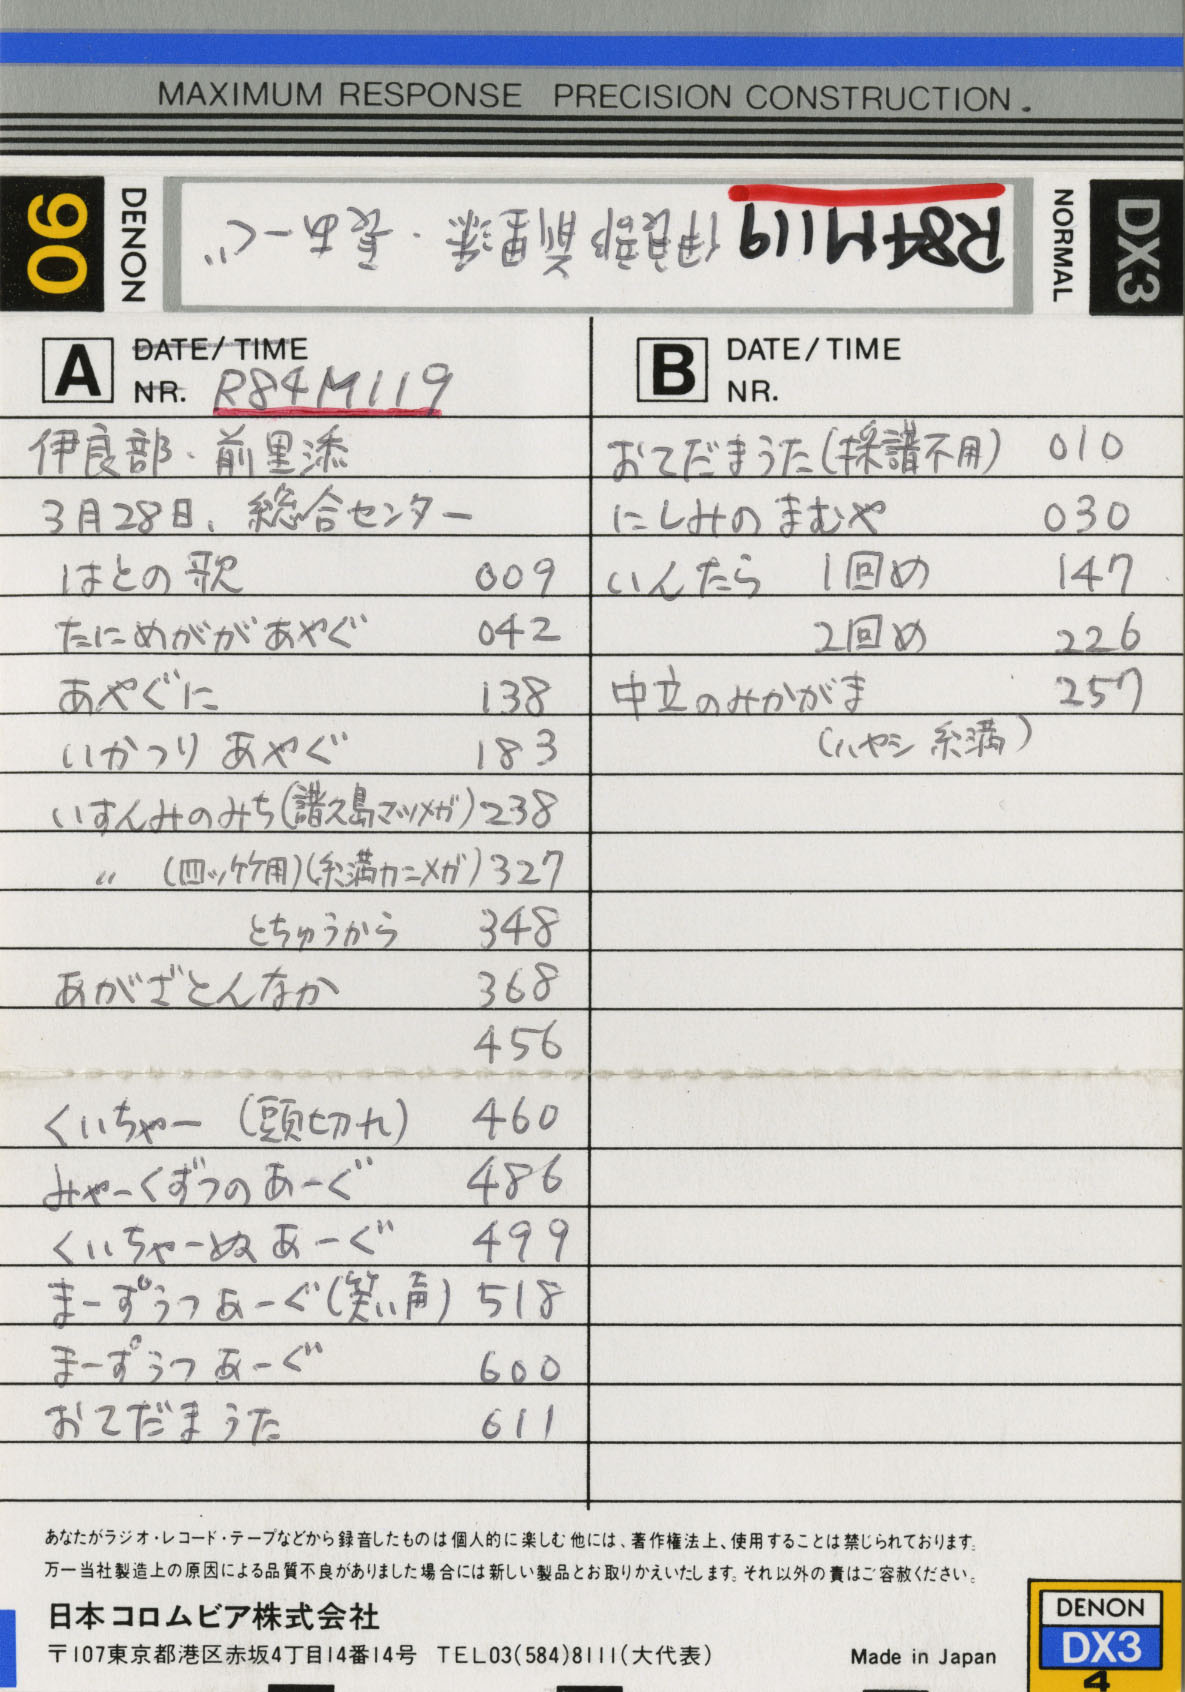 MAXIMUM RESPONSE PRECISION CONSTRUCTION.
90
DENON
R84M119 伊良部前里添・長あーぐ
NORMAL
DX3
A DATE/TIME
NR. R84M119
伊良部・前里添
3月28日、総合センター
はとの歌 009
たにめががあやぐ 042
あやぐに 138
いかつりあやぐ 183
いすんみのみち(諸久島マツメガ) 238
〃 (四ッ竹用)(糸満カニメガ) 327
とちゅうから 348
あがざとんなか 368
456
くいちゃー (頭切れ) 460
みゃーくずつのあーぐ 486
くいちゃーぬあーぐ 499
まーず゚うつあーぐ(笑い声) 518
まーす゚うつあーぐ 600
おてだまうた 611
B DATE/TIME
NR.
おてだまうた(採譜不用) 010
にしみのまむや 030
いんたら 1回め 147
2回め 226
中立のみかがま 257
(ハヤシ 糸満)
あなたがラジオ・レコード・テープなどから録音したものは個人的に楽しむ他には、著作権法上、使用することは禁じられております。
万一当社製造上の原因による品質不良がありました場合には新しい製品とお取りかえいたします。それ以外の責はご容赦ください。
日本コロムビア株式会社
〒107東京都港区赤坂4丁目14番14号 TEL03(584)8111(大代表)
Made in Japan
DENON
DX3
4